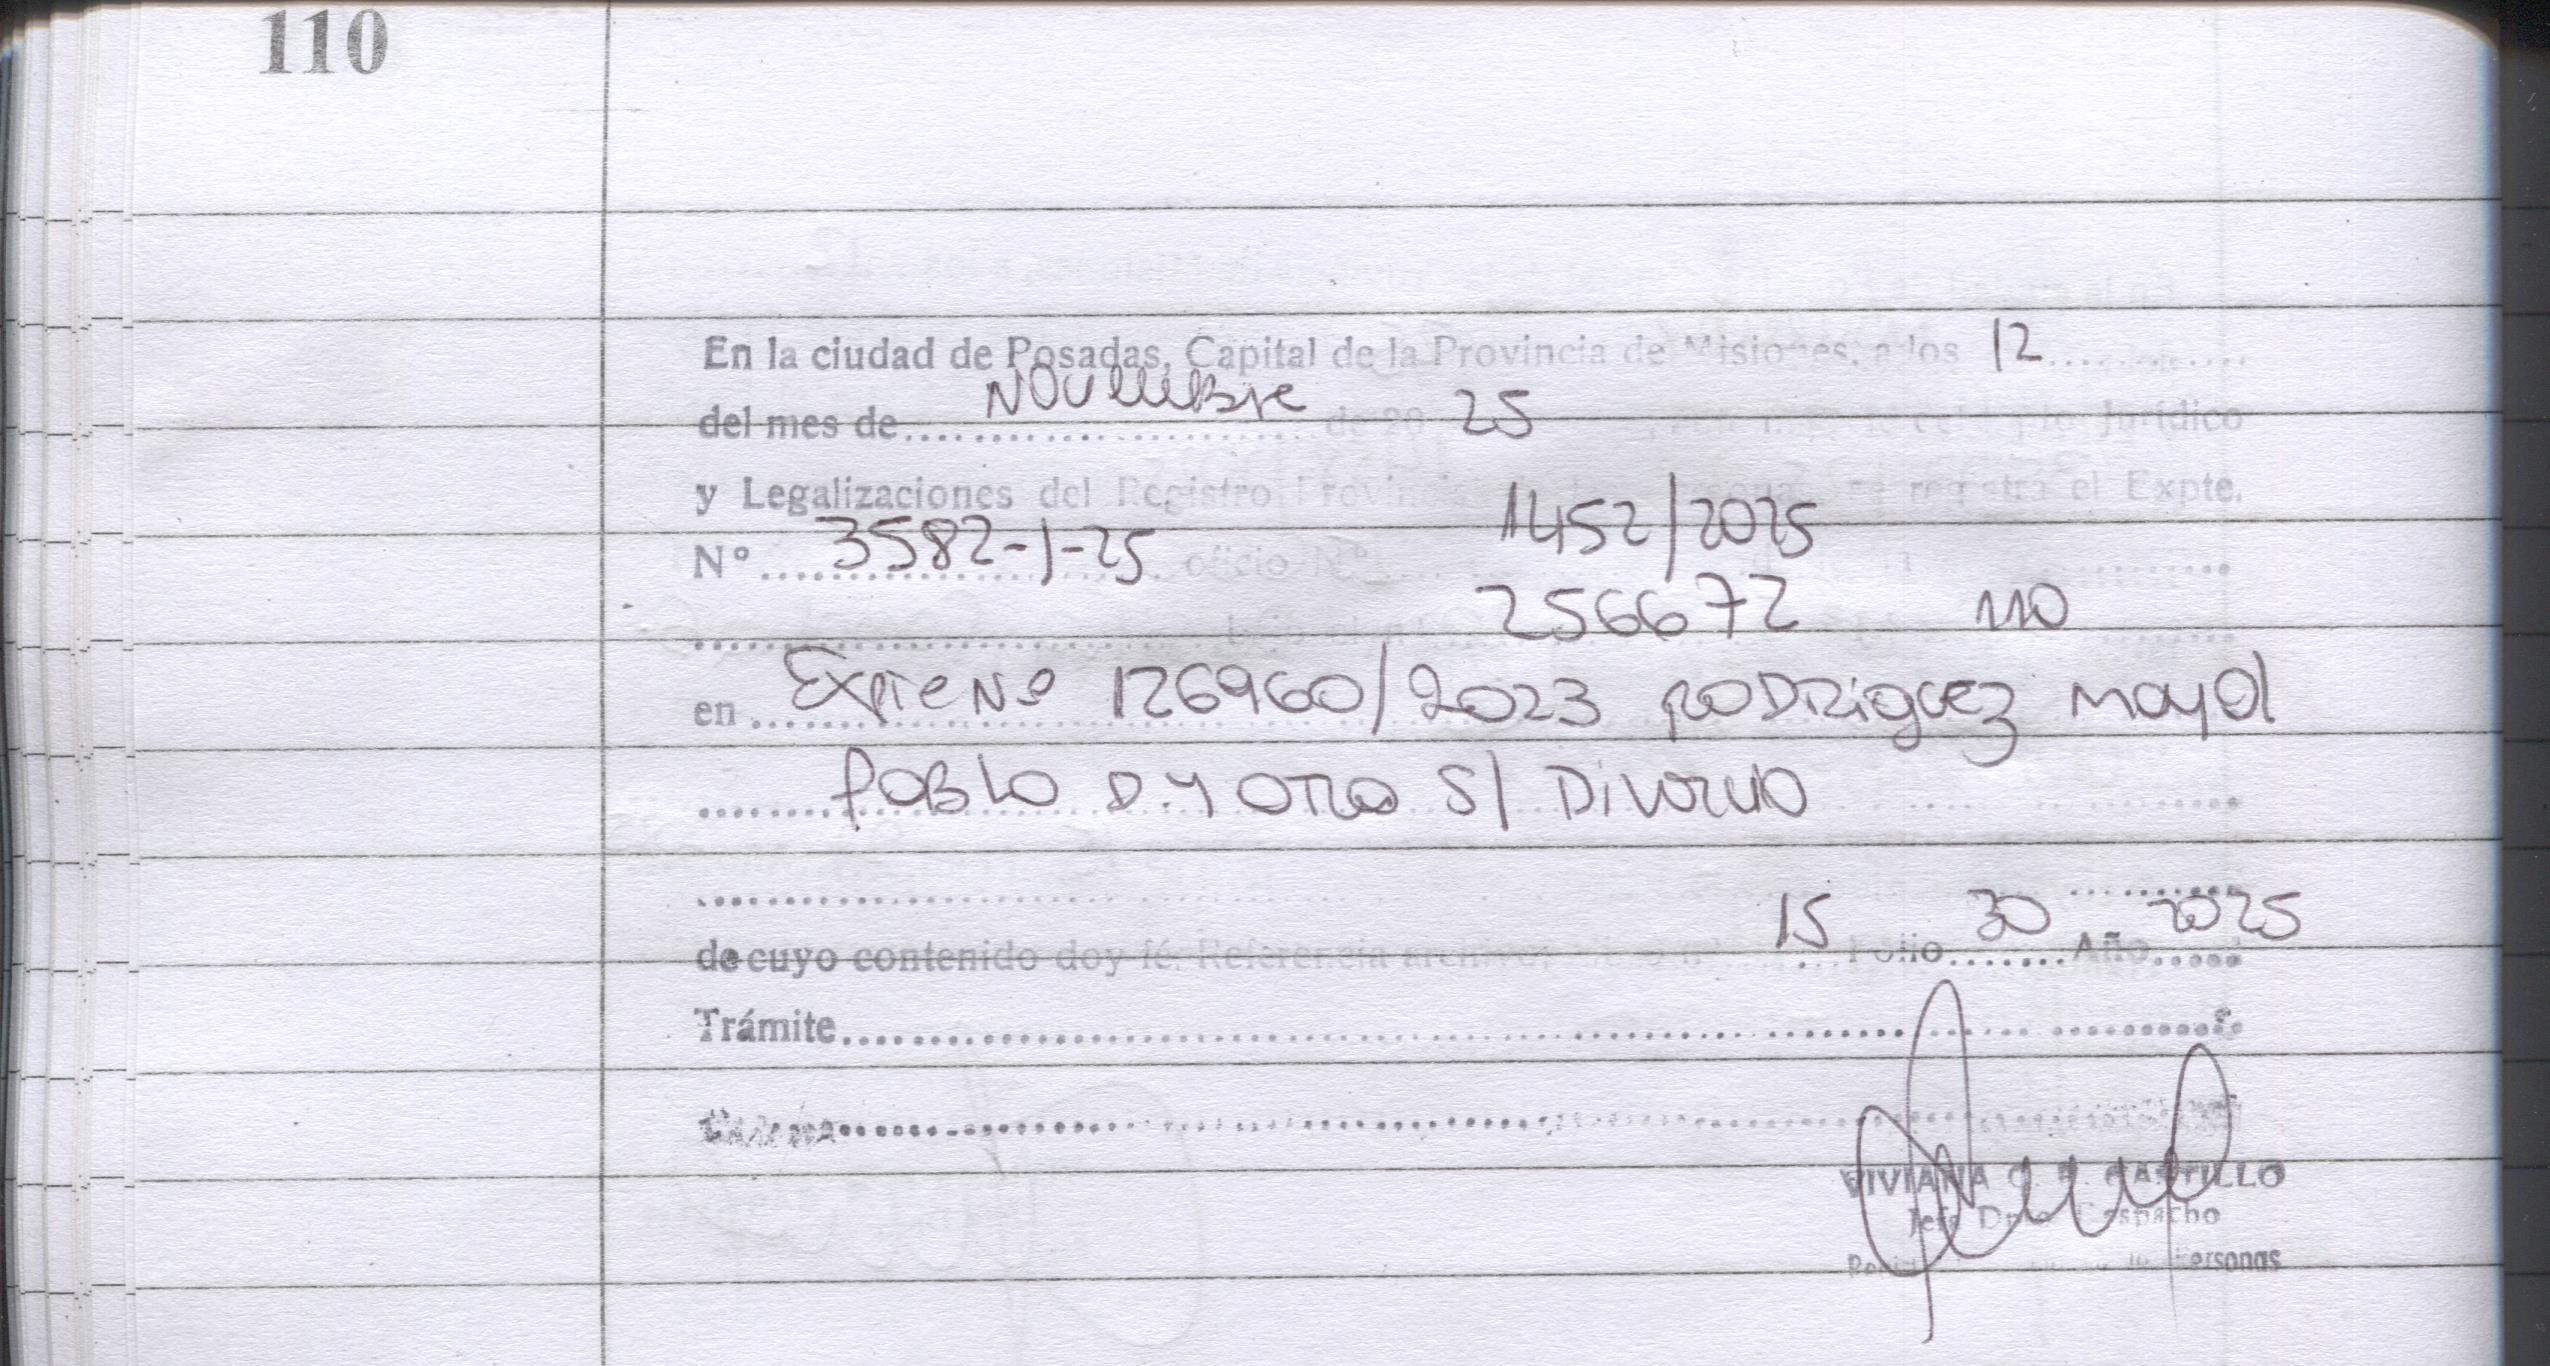 110
En la ciudad de Posadas, Capital de la Provincia de Misiones, a los 12
del mes de Noviembre de 20 25 Jurídico
y Legalizaciones del Registro registra el Expte.
Nº 3582-J-25 oficio Nº 1452/2025
256672 110
en Expte Nº 126960/2023 RODRIGUEZ MAYOL
PABLO D. Y OTRO S/ DIVORCIO
de cuyo contenido doy fé. Referencia 15 Folio 30 Año 2025
Trámite
VIVIANA CASTILLO
Jefe Dpto Despacho
Personas